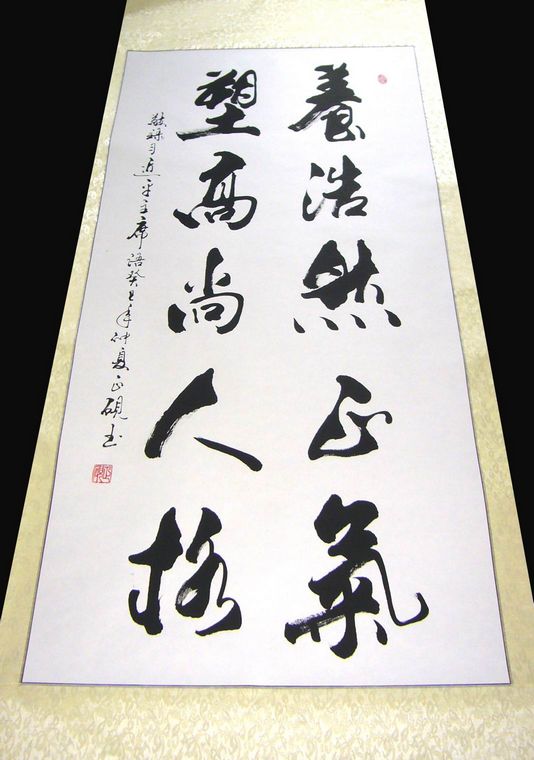 養浩然正氣
塑高尚人格
敬録习近平主席語癸巳年仲夏正硯书